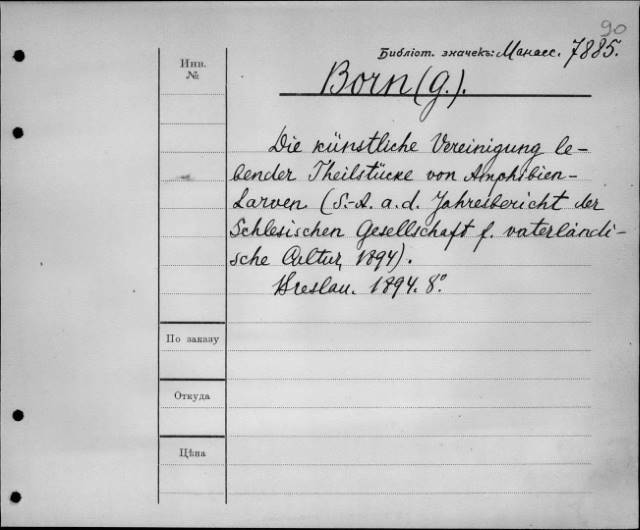 90
Библіот. значекъ: Манасс. 7885.
Инв.
№
Born (G.).
Die künstliche Vereinigung le-
bender Theilstücke von Amphibien-
Larven (S.-A. a. d. Jahresbericht der
Schlesischen Gesellschaft f. vaterländi-
sche Cultur, 1894).
Breslau. 1894. 8°.
По заказу
Откуда
Цѣна